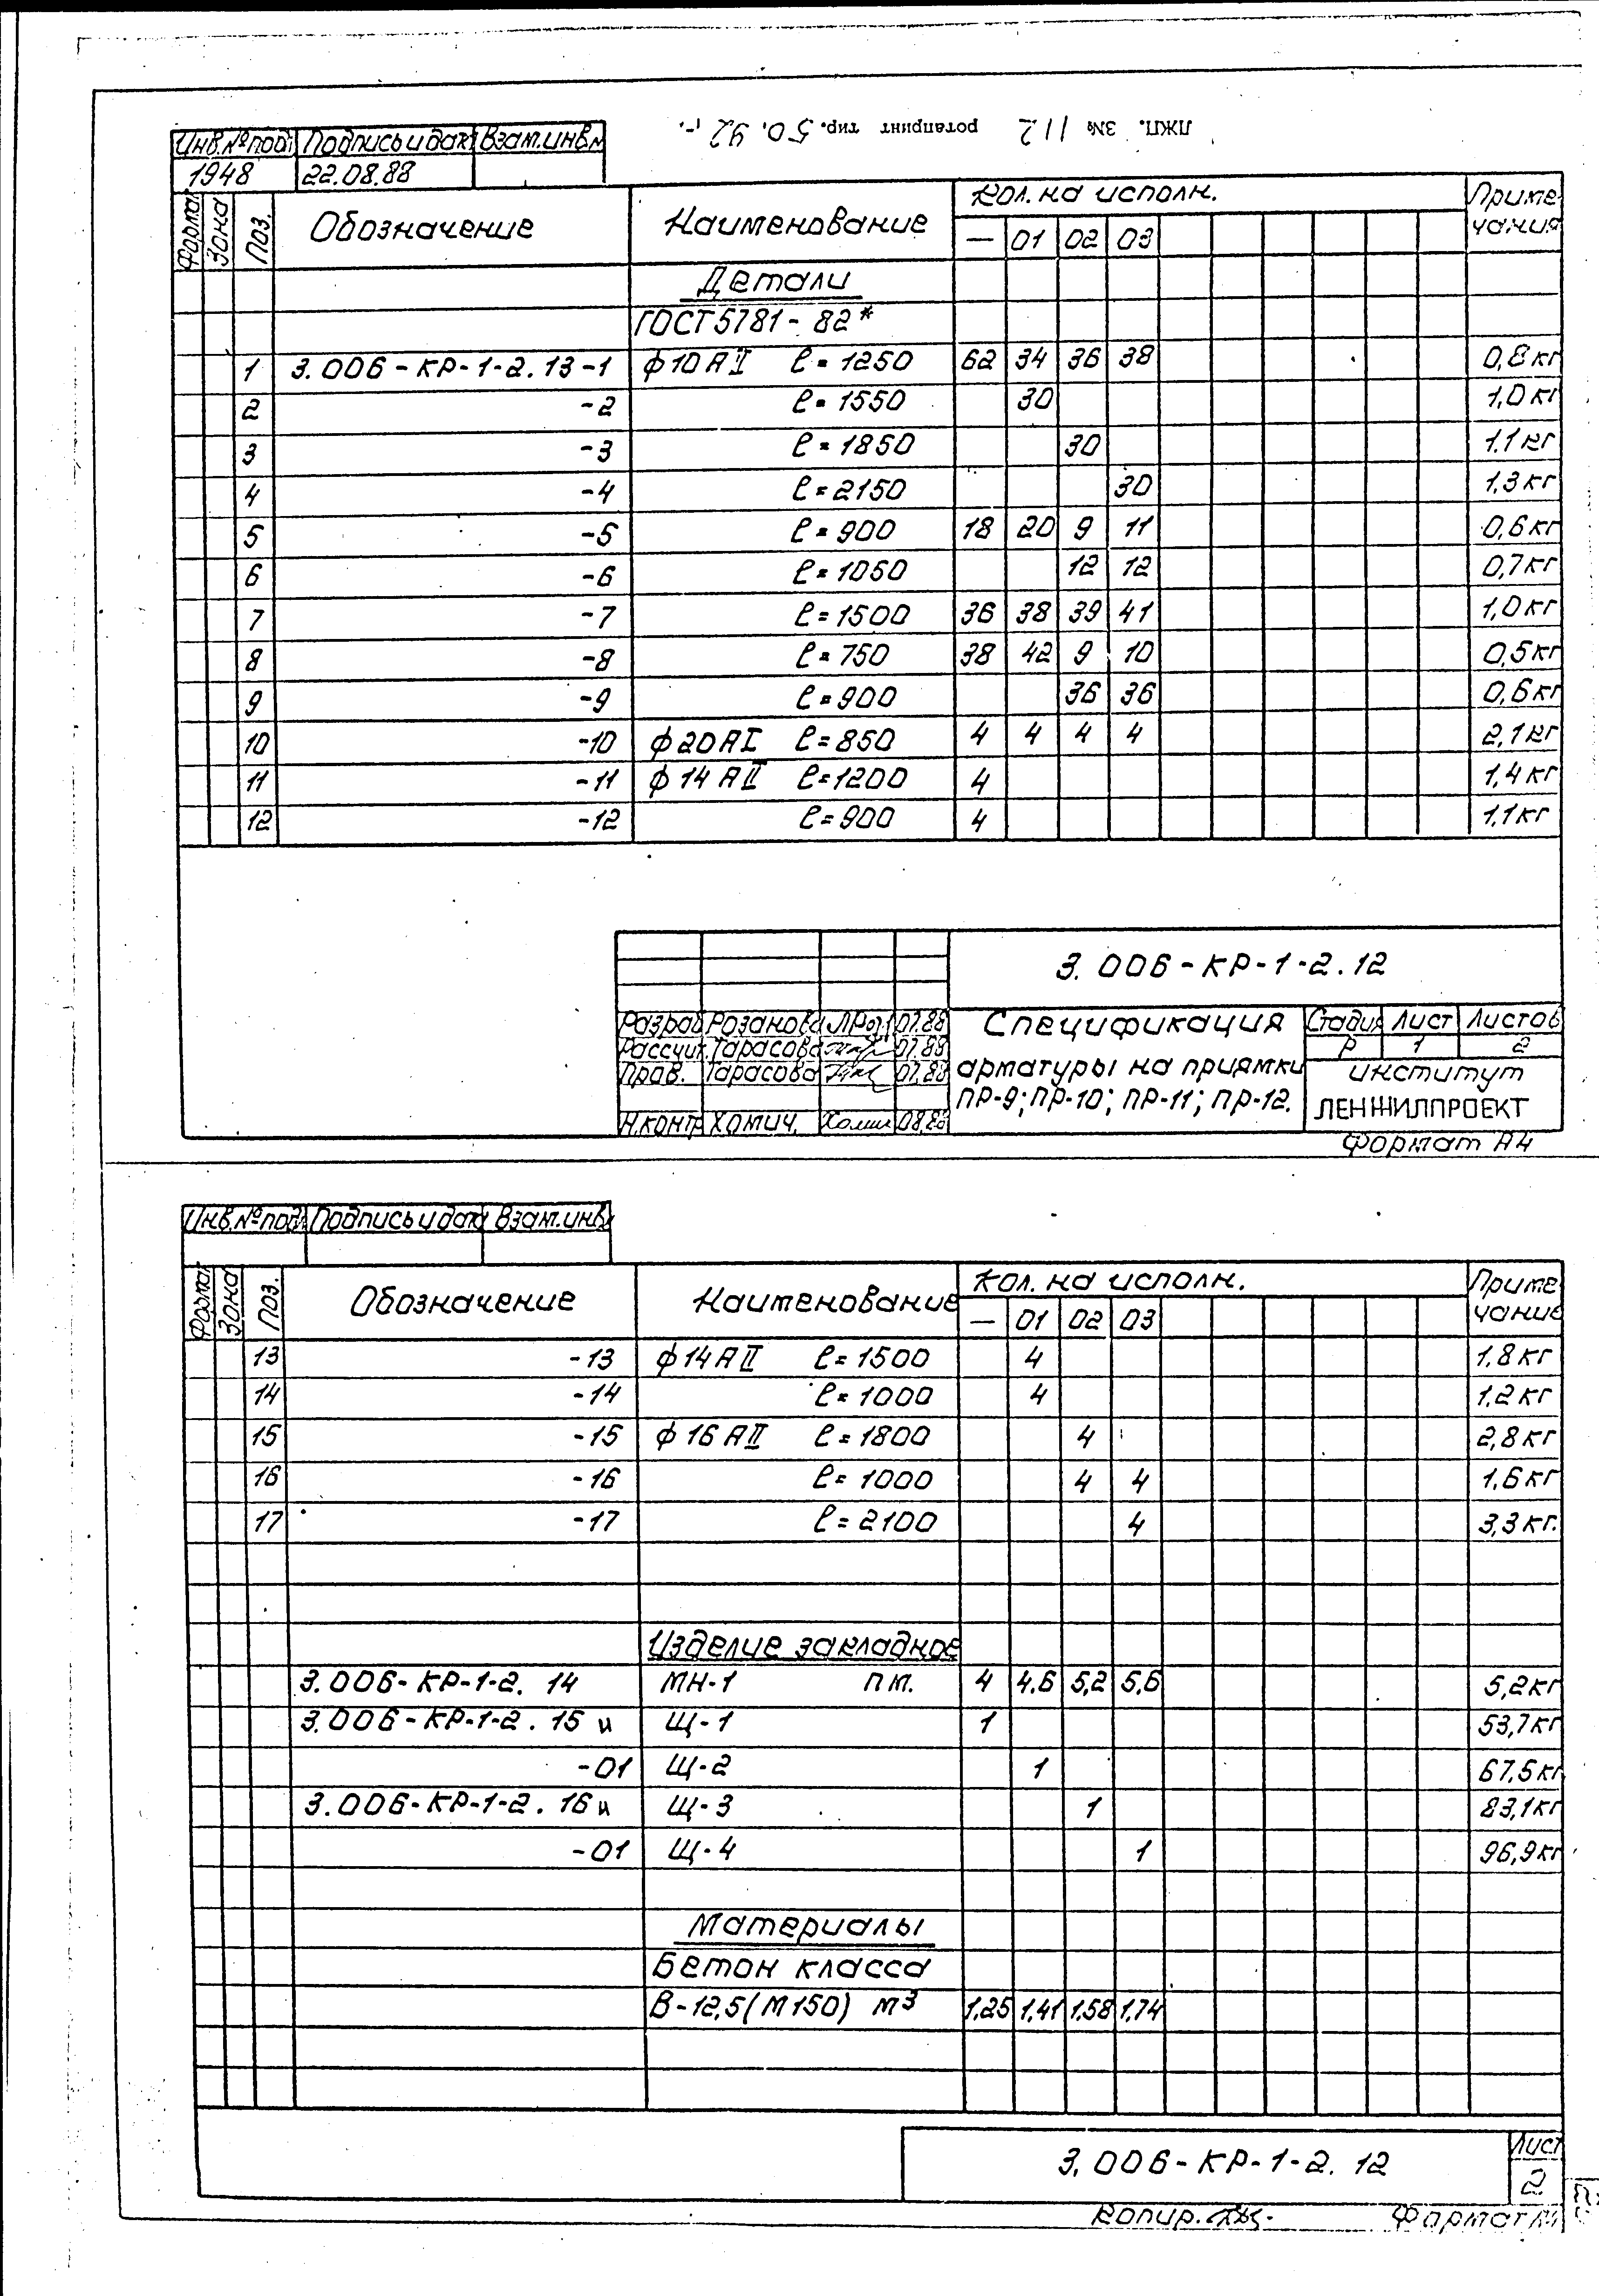 ЛЖКП. ЗК№ 112 ротапринт тир. 50. 92 г.
Инв.№под. Подпись и дат Взам.инв.№
1948 22.08.88
Формат Зона Поз. Обозначение Наименование Кол. на исполн. Приме-
— 01 02 03 чания
Детали
ГОСТ 5781-82*
1 3.006-КР-1-2.13-1 ф10АII ℓ=1250 62 34 36 38 0,8кг
2 -2 ℓ=1550 30 1,0кг
3 -3 ℓ=1850 30 1,1кг
4 -4 ℓ=2150 30 1,3кг
5 -5 ℓ=900 18 20 9 11 0,6кг
6 -6 ℓ=1050 12 12 0,7кг
7 -7 ℓ=1500 36 38 39 41 1,0кг
8 -8 ℓ=750 38 42 9 10 0,5кг
9 -9 ℓ=900 36 36 0,6кг
10 -10 ф20АI ℓ=850 4 4 4 4 2,1кг
11 -11 ф14АII ℓ=1200 4 1,4кг
12 -12 ℓ=900 4 1,1кг
3.006-КР-1-2.12
Разраб Розанова 07.88 Спецификация Стадия Лист Листов
Рассчит. Тарасова 07.88 Р 1 2
Пров. Тарасова 07.88 арматуры на приямки институт
ПР-9; ПР-10; ПР-11; ПР-12. ЛЕНЖИЛПРОЕКТ
Н.контр Хомич. 08.88
Формат А4
Инв.№под. Подпись и дата Взам.инв.
Формат Зона Поз. Обозначение Наименование Кол. на исполн. Приме-
— 01 02 03 чание
13 -13 ф14АII ℓ=1500 4 1,8кг
14 -14 ℓ=1000 4 1,2кг
15 -15 ф16АII ℓ=1800 4 2,8кг
16 -16 ℓ=1000 4 4 1,6кг
17 -17 ℓ=2100 4 3,3кг.
Изделие закладное
3.006-КР-1-2. 14 МН-1 п.м. 4 4,6 5,2 5,6 5,2кг
3.006-КР-1-2.15 и Щ-1 1 53,7кг
-01 Щ-2 1 67,5кг
3.006-КР-1-2.16 и Щ-3 1 83,1кг
-01 Щ-4 1 96,9кг
Материалы
Бетон класса
В-12,5(М150) м³ 1,25 1,41 1,58 1,74
3.006-КР-1-2.12 Лист
2
Копир. Формат А4